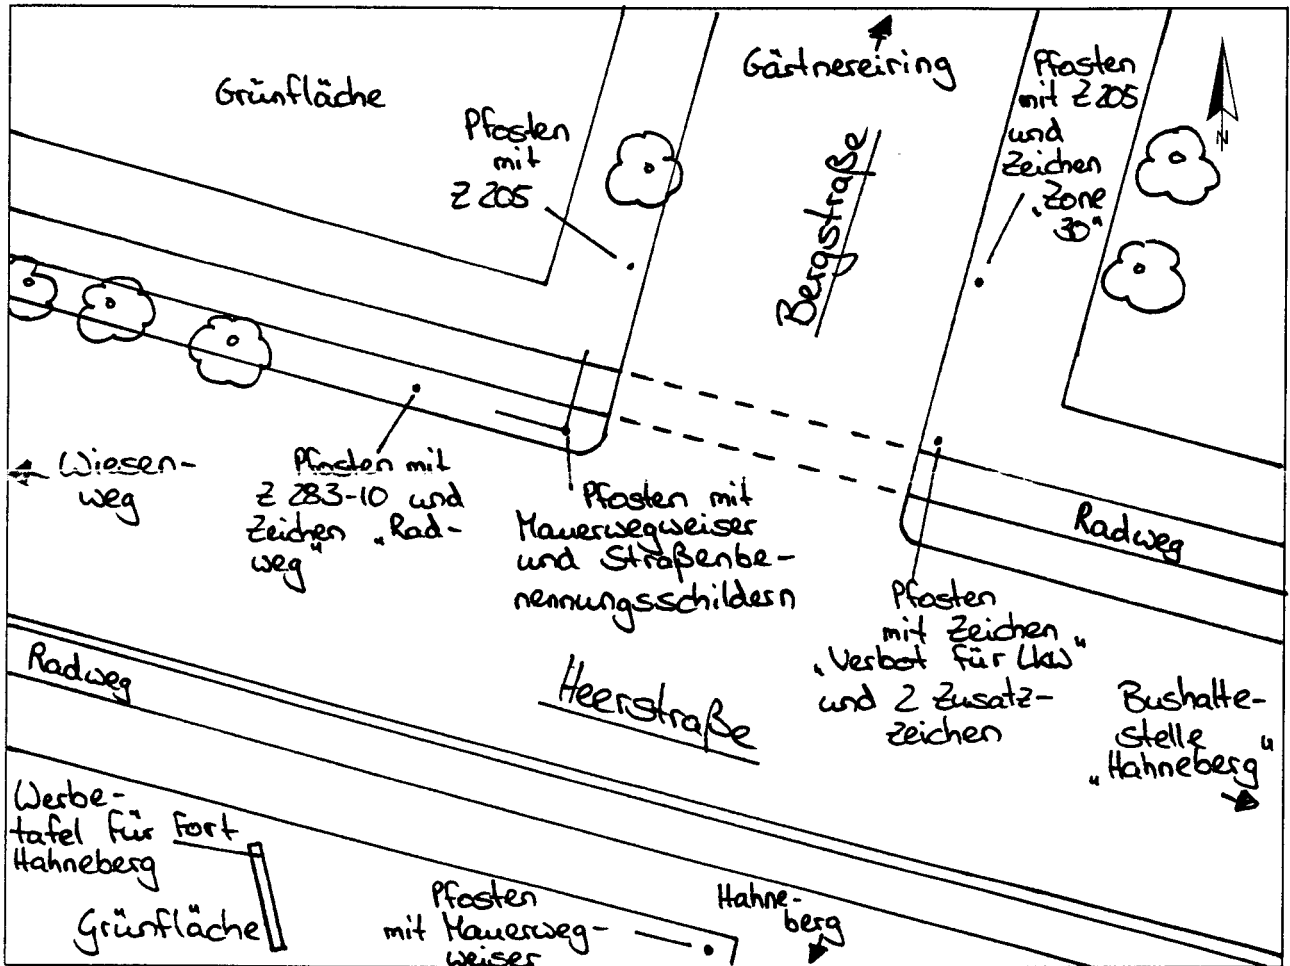 Grünfläche
Pfosten
mit
Z 205
Gärtnereiring
Bergstraße
Pfosten
mit Z 205
und
Zeichen
„Zone
30“
N
Wiesen-
weg
Pfosten mit
Z 283-10 und
Zeichen „Rad-
weg“
Pfosten mit
Mauerwegweiser
und Straßenbe-
nennungsschildern
Radweg
Pfosten
mit Zeichen
„Verbot für Lkw“
und 2 Zusatz-
zeichen
Radweg
Heerstraße
Bushalte-
stelle
„Hahneberg“
Werbe-
tafel für Fort
Hahneberg
Grünfläche
Pfosten
mit Mauerweg-
weiser
Hahne-
berg